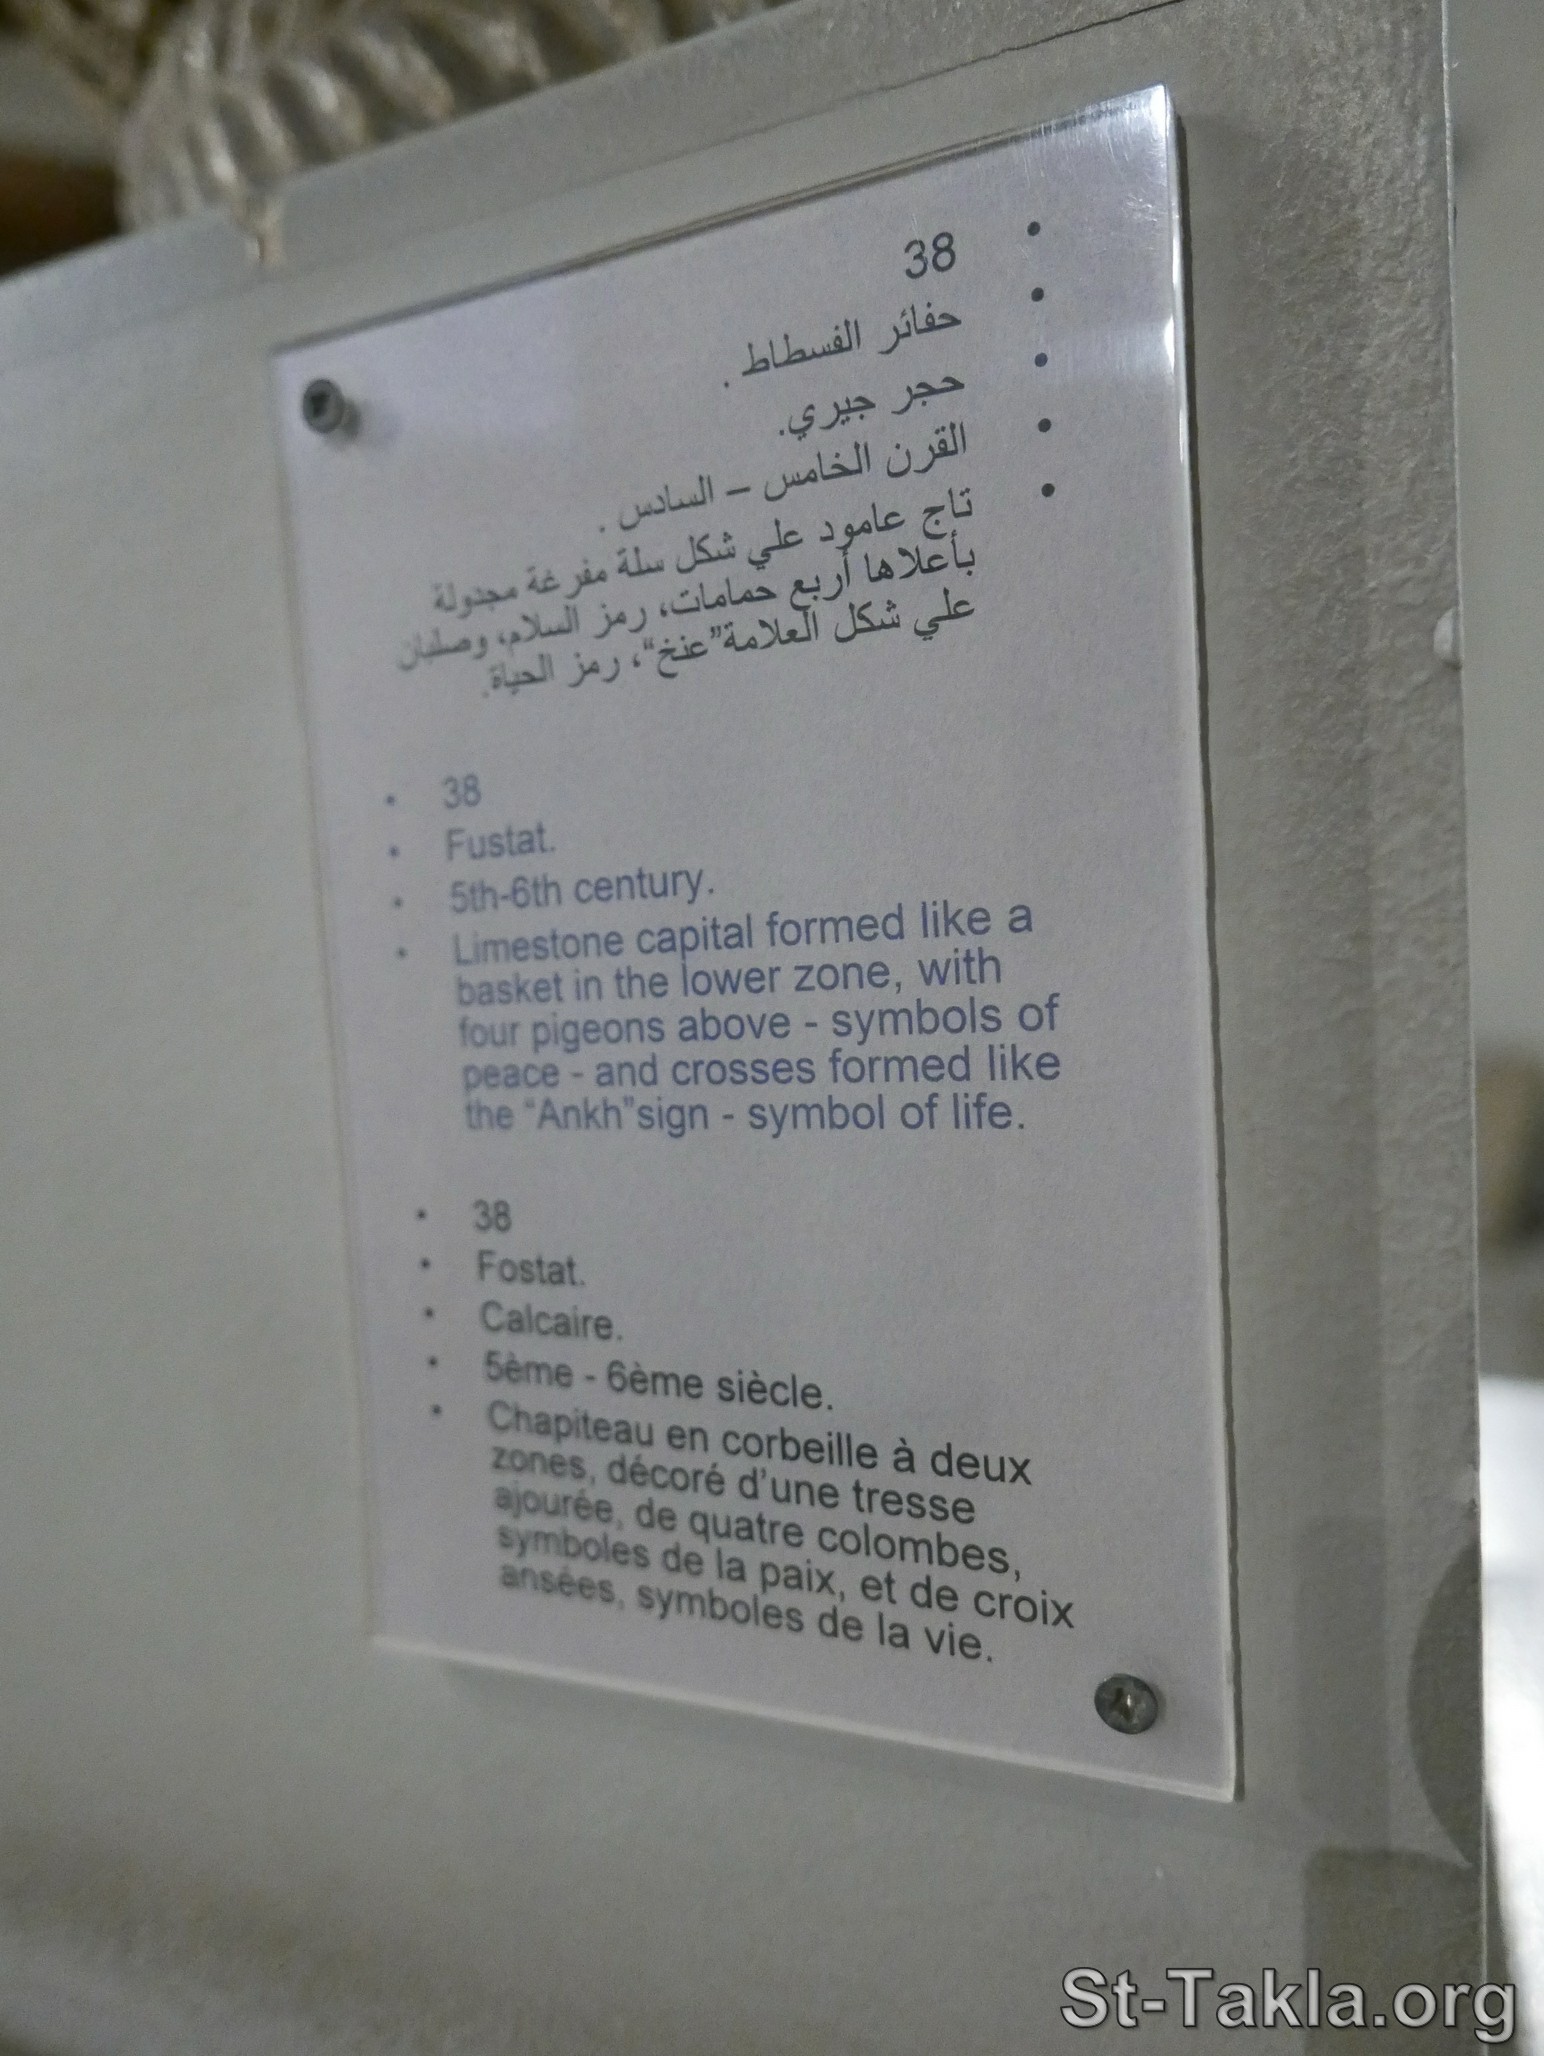 • 38
• حفائر الفسطاط .
• حجر جيري.
• القرن الخامس – السادس .
• تاج عامود علي شكل سلة مفرغة مجدولة
بأعلاها أربع حمامات، رمز السلام، وصلبان
علي شكل العلامة"عنخ"، رمز الحياة.
• 38
• Fustat.
• 5th-6th century.
• Limestone capital formed like a
basket in the lower zone, with
four pigeons above - symbols of
peace - and crosses formed like
the “Ankh”sign - symbol of life.
• 38
• Fostat.
• Calcaire.
• 5ème - 6ème siècle.
• Chapiteau en corbeille à deux
zones, décoré d’une tresse
ajourée, de quatre colombes,
symboles de la paix, et de croix
ansées, symboles de la vie.
St-Takla.org